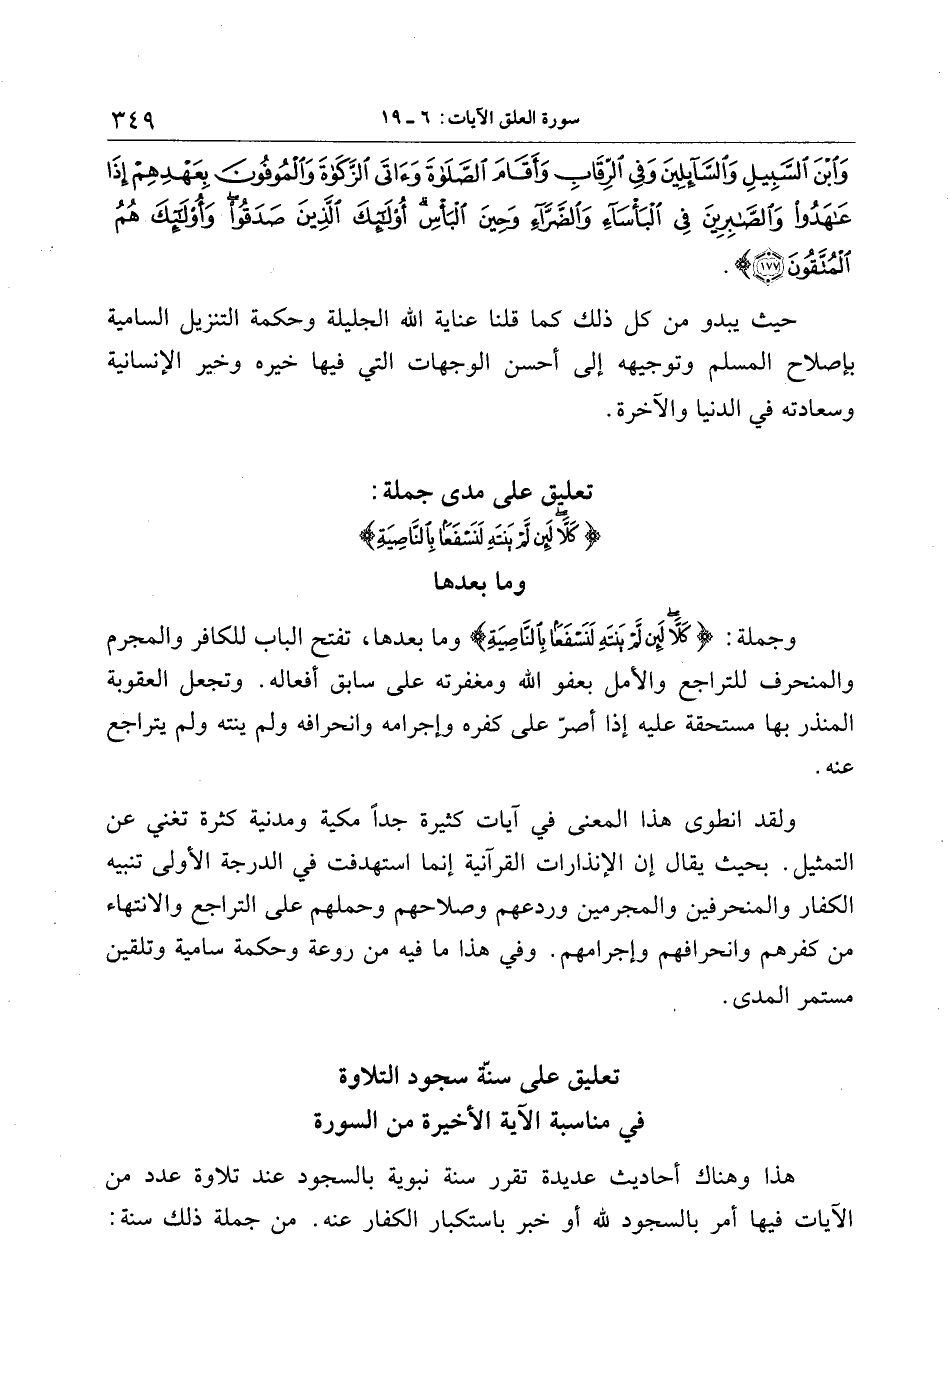 سورة العلق الآيات: ٦ ـ ١٩
٣٤٩
وَٱبْنَ ٱلسَّبِيلِ وَٱلسَّآئِلِينَ وَفِى ٱلرِّقَابِ وَأَقَامَ ٱلصَّلَوٰةَ وَءَاتَى ٱلزَّكَوٰةَ وَٱلْمُوفُونَ بِعَهْدِهِمْ إِذَا
عَـٰهَدُوا۟ وَٱلصَّـٰبِرِينَ فِى ٱلْبَأْسَآءِ وَٱلضَّرَّآءِ وَحِينَ ٱلْبَأْسِ ۗ أُو۟لَـٰٓئِكَ ٱلَّذِينَ صَدَقُوا۟ ۖ وَأُو۟لَـٰٓئِكَ هُمُ
ٱلْمُتَّقُونَ ١٧٧﴾.
حيث يبدو من كل ذلك كما قلنا عناية الله الجليلة وحكمة التنزيل السامية
بإصلاح المسلم وتوجيهه إلى أحسن الوجهات التي فيها خيره وخير الإنسانية
وسعادته في الدنيا والآخرة.
تعليق على مدى جملة:
﴿كَلَّا ۖ لَئِن لَّمْ يَنتَهِ لَنَسْفَعًۢا بِٱلنَّاصِيَةِ﴾
وما بعدها
وجملة: ﴿كَلَّا ۖ لَئِن لَّمْ يَنتَهِ لَنَسْفَعًۢا بِٱلنَّاصِيَةِ﴾ وما بعدها، تفتح الباب للكافر والمجرم
والمنحرف للتراجع والأمل بعفو الله ومغفرته على سابق أفعاله. وتجعل العقوبة
المنذر بها مستحقة عليه إذا أصرّ على كفره وإجرامه وانحرافه ولم ينته ولم يتراجع
عنه.
ولقد انطوى هذا المعنى في آيات كثيرة جداً مكية ومدنية كثرة تغني عن
التمثيل. بحيث يقال إن الإنذارات القرآنية إنما استهدفت في الدرجة الأولى تنبيه
الكفار والمنحرفين والمجرمين وردعهم وصلاحهم وحملهم على التراجع والانتهاء
من كفرهم وانحرافهم وإجرامهم. وفي هذا ما فيه من روعة وحكمة سامية وتلقين
مستمر المدى.
تعليق على سنّة سجود التلاوة
في مناسبة الآية الأخيرة من السورة
هذا وهناك أحاديث عديدة تقرر سنة نبوية بالسجود عند تلاوة عدد من
الآيات فيها أمر بالسجود لله أو خبر باستكبار الكفار عنه. من جملة ذلك سنة: